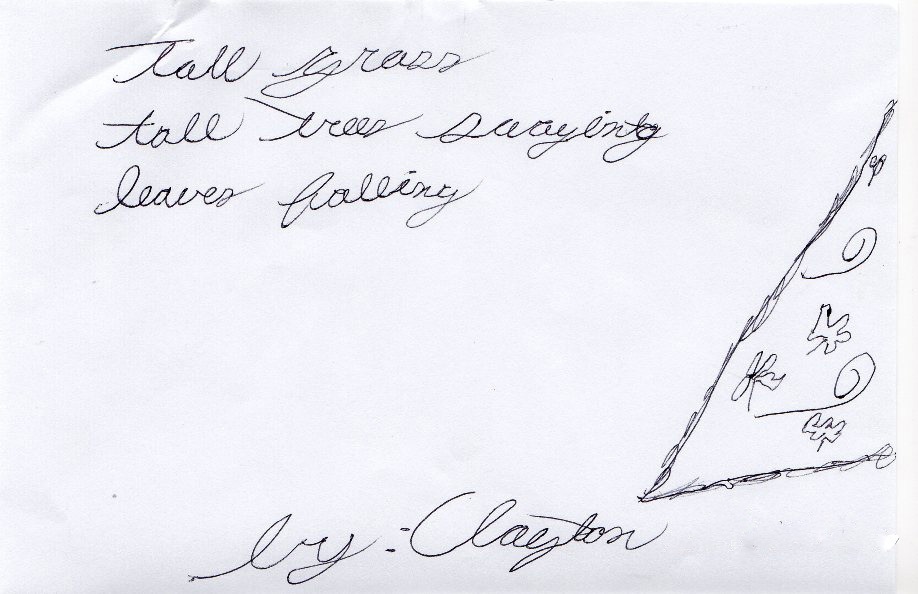 tall grass
tall trees swaying
leaves falling
by: Clayton